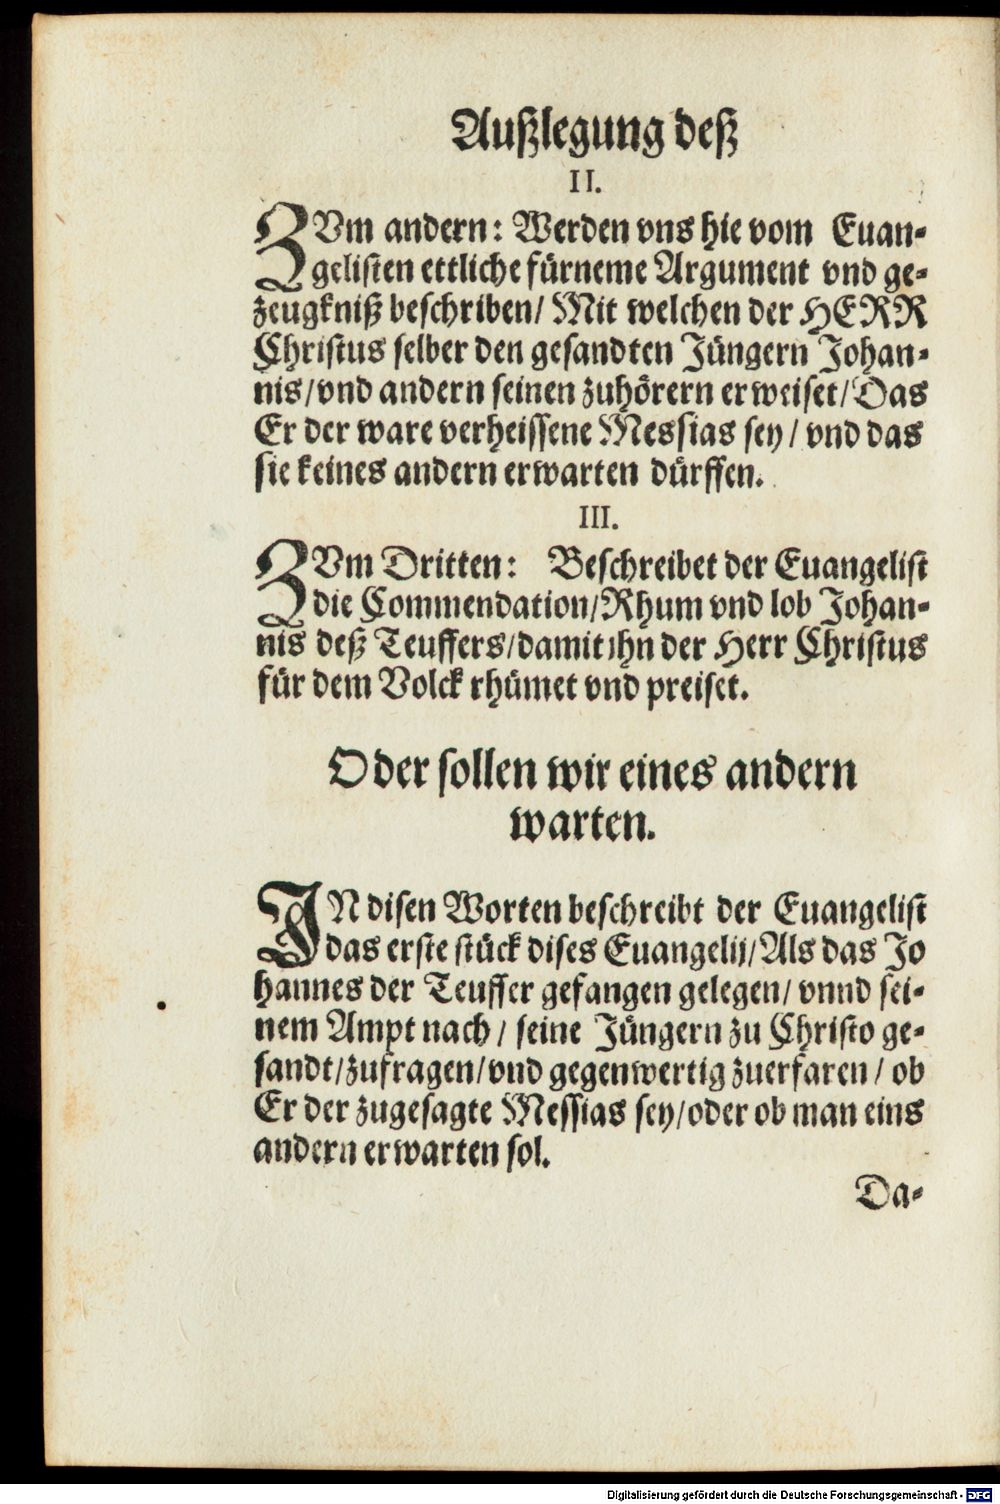 Außlegung deß
II.
ZVm andern: Werden vns hie vom Euan-
gelisten ettliche fürneme Argument vnd ge-
zeugkniß beschriben/ Mit welchen der HERR
Christus selber den gesandten Jüngern Johan-
nis/vnd andern seinen zuhörern erweiset/Das
Er der ware verheissene Messias sey/ vnd das
sie keines andern erwarten dürffen.
III.
ZVm Dritten: Beschreibet der Euangelist
die Commendation/Rhum vnd lob Johan-
nis deß Teuffers/damit ihn der Herr Christus
für dem Volck rhümet vnd preiset.
Oder sollen wir eines andern
warten.
IN disen Worten beschreibt der Euangelist
das erste stück dises Euangelij/Als das Jo
hannes der Teuffer gefangen gelegen/ vnnd sei-
nem Ampt nach/ seine Jüngern zu Christo ge-
sandt/zufragen/vnd gegenwertig zuerfaren/ ob
Er der zugesagte Messias sey/oder ob man eins
andern erwarten sol.
Da-
Digitalisierung gefördert durch die Deutsche Forschungsgemeinschaft - DFG